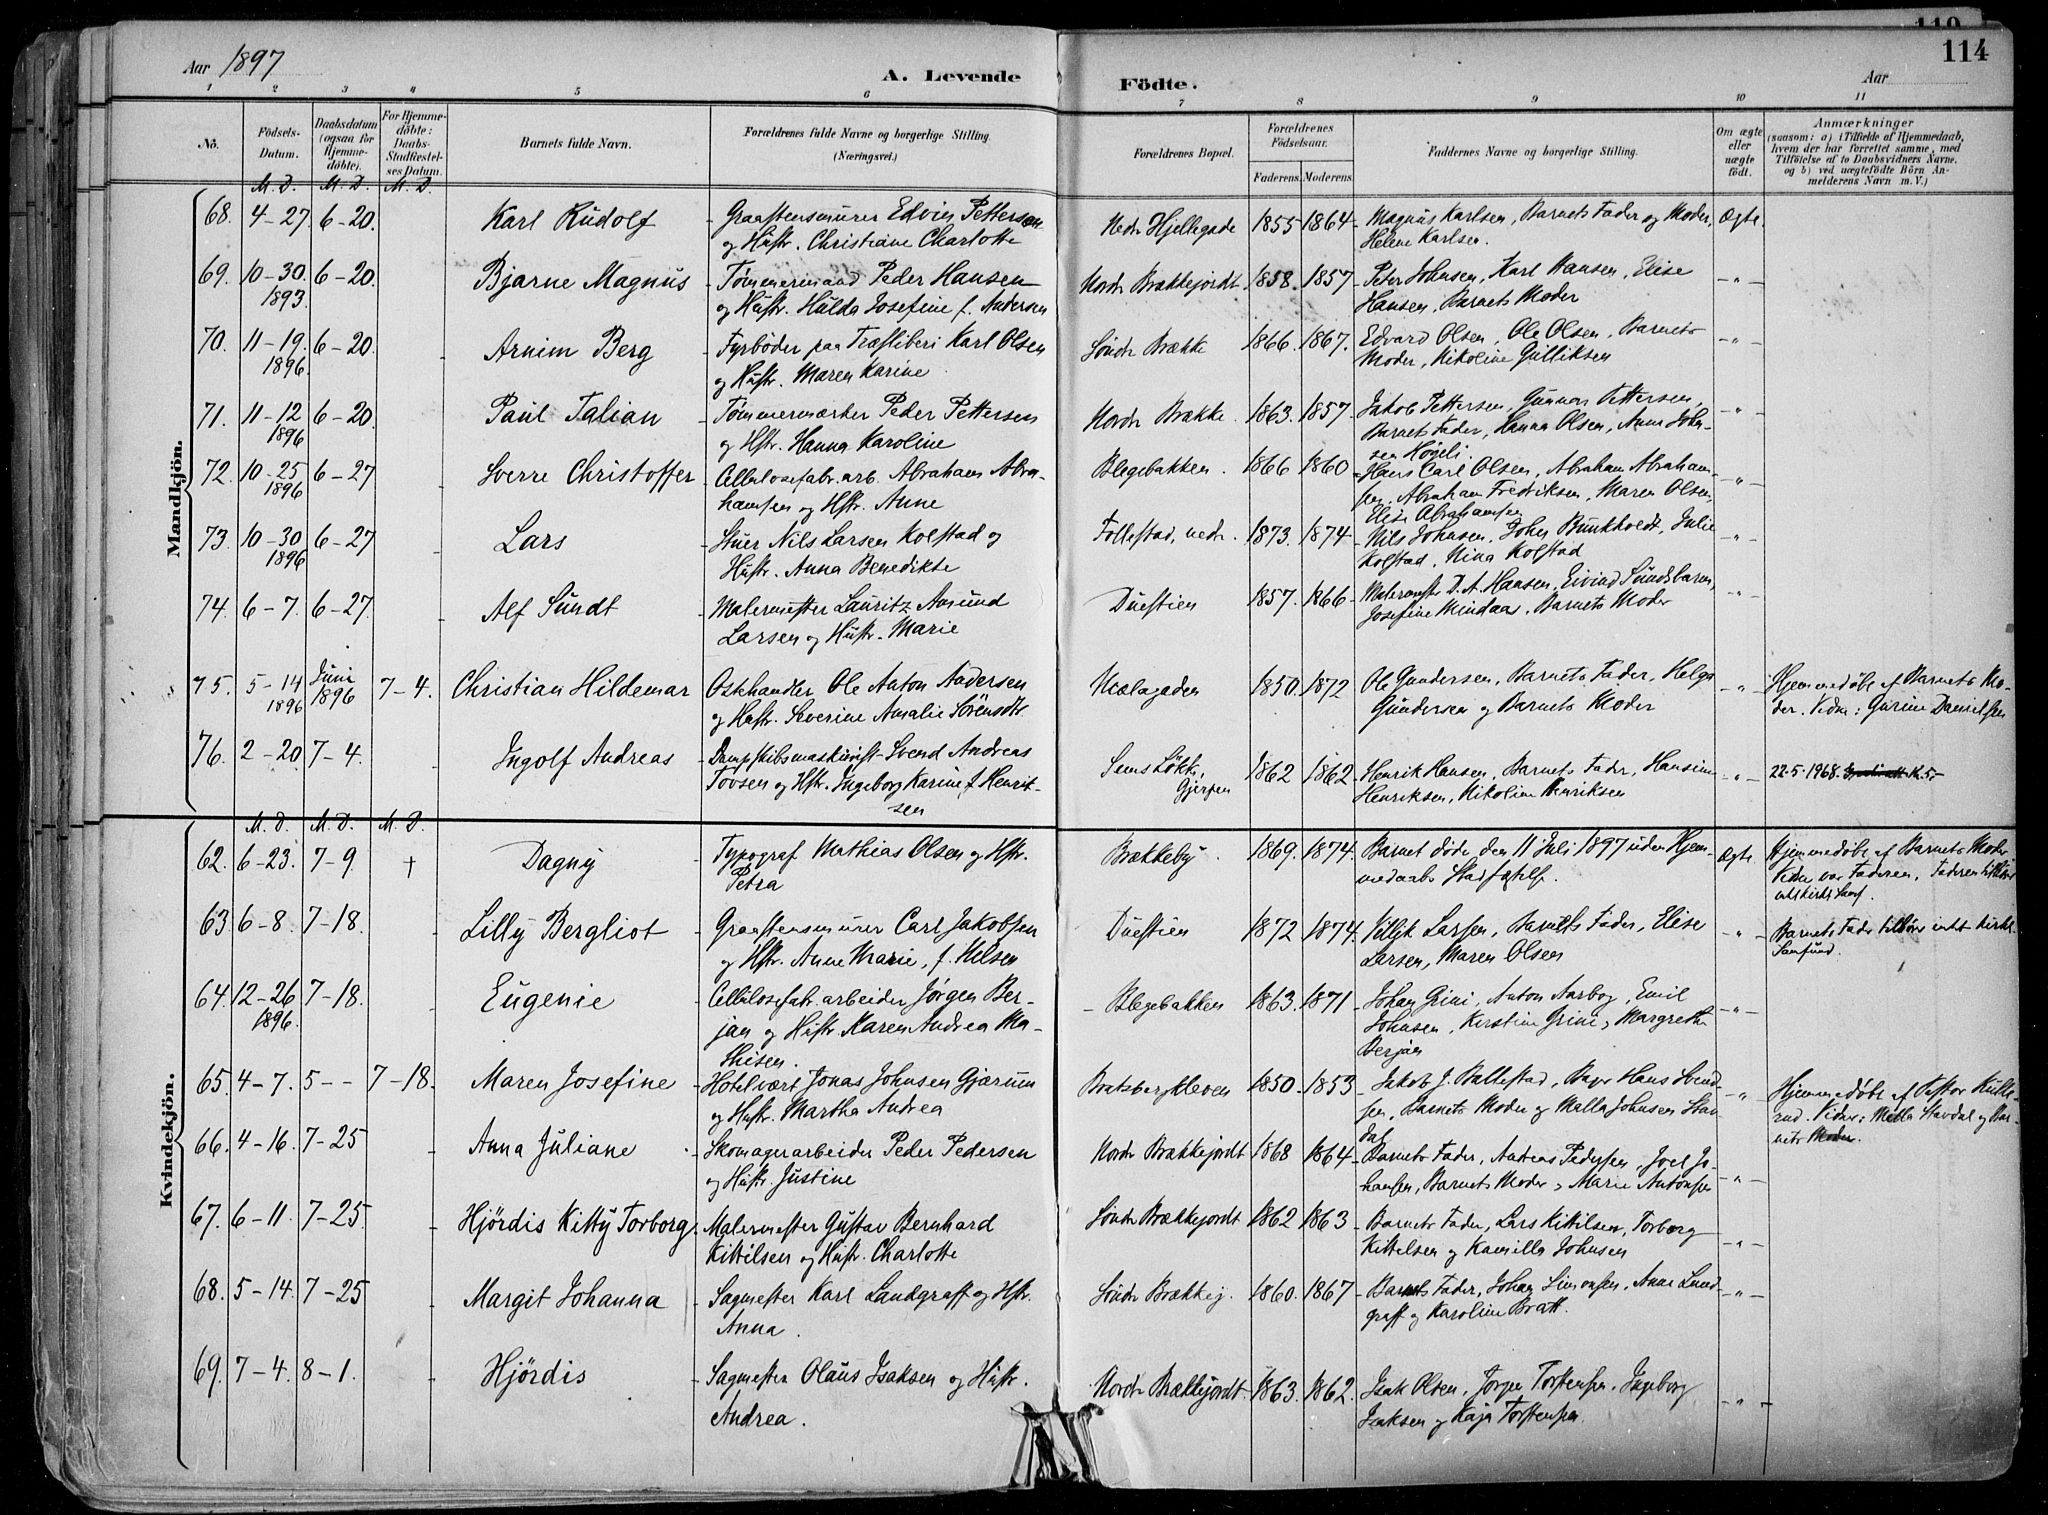 110
114
Aar 1897
A. Levende
Födte.
Aar
1 2 3 4 5 6 7 8 9 10 11
No.
Födsels-
Datum.
Daabsdatum
(ogsaa for
Hjemme-
döbte).
For Hjemme-
döbte:
Daabs-
Stadfæstel-
ses Datum.
Barnets fulde Navn.
Forældrenes fulde Navne og borgerlige Stilling.
(Næringsvei.)
Forældrenes Bopæl.
Forældrenes
Födselsaar.
Faderens. Moderens.
Faddernes Navne og borgerlige Stilling.
Om ægte
eller
uægte
födt.
Anmærkninger
(saasom: a) i Tilfælde af Hjemmedaab,
hvem der har forrettet samme, med
Tilföielse af to Daabsvidners Navne,
og b) ved uægtefödte Börn An-
melderens Navn m. V.)
Mandkjön.
M. D. M. D. M. D.
68. 4-27. 6-20. Karl Rudolf - Graastensmurer Edvin Pettersen Nedr Hjellegade 1855 1864 - Magnus Karlsen, Barnets Fader og Moder, Ægte.
og Hustr. Christiane Charlotte Helene Karlsen.
69. 10-30. 6-20. Bjarne Magnus - Tømmermand Peder Hansen Nordr Brækkejordt 1858. 1857 - Peter Johnsen, Karl Hansen, Elise -"-
1893. og Hustr. Hulda Josefine f. Andersen Hansen, Barnets Moder
70. 11-19. 6-20. Arnim Berg - Fyrbøder paa Træsliberi Karl Olsen Søndr Brække 1866. 1867. Edvard Olsen, Ole Olsen, Barnets -"-
1896. og Hustr. Maren Karine Moder, Nikoline Gulliksen
71. 11-12 6-20. Paul Talian - Tømmermærker Peder Pettersen Nordr Brække. 1863. 1857 Jakob Pettersen, Gunnar Pettersen, -"-
1896 og Hstr. Hanna Karoline Barnets Fader, Hanna Olsen, Anne John-
sen Høgeli.
72. 10-25 6-27 Sverre Christoffer - Cellulosefabr. arb. Abraham Abra- Blegebakken. 1866 1860 Hans Carl Olsen, Abraham Abraham- -"-
1896 hamsen og Hstr. Anne sen, Abraham Fredriksen, Maren Olsen,
Elise Abrahamsen
73. 10-30 6-27 Lars - Stuer Nils Larsen Kolstad og Follestad, nedr. 1873. 1874 - Nils Johnsen, John Bunkholdt, Julie -"-
1896 Hustr. Anna Benedikte Kolstad, Nina Kolstad
74. 6-7. 6-27. Alf Sundt - Malermester Lauritz Amund Duestien 1857. 1866 - Malermstr D. A. Hansen, Eivind Sundsbarm, -"-
Larsen og Hustr. Marie Josefine Mindaas, Barnets Moder
75. 5-14 Juni 7-4. Christian Hildemar - Ostehandler Ole Anton Andersen Mælagaden 1850. 1872 Ole Gundersen, Barnets Fader, Helga -"- Hjemmedøbt af Barnets Mo-
1896 1896 og Hustr. Severine Amalie Sörensdtr Gundersen og Barnets Moder der. Vidne: Gurine Danielsen
76. 2-20 7-4. Ingolf Andreas - Dampskibsmaskinist Svend Andreas Sems Løkke, 1862 1862 Henrik Hansen, Barnets Fader, Hansine -"- 22-5-1968. K.5.-
Tovsen og Hstr. Ingeborg Karine f. Henrik- Gjerpen Henriksen, Nikoline Henriksen
sen
Kvindekjön.
M. D. M. D. M. D.
62. 6-23. 7-9. † Dagny - Typograf Mathias Olsen og Hstr. Brækkeby. 1869. 1874. Barnet døde den 11 Juli 1897 uden Hjem- Ægte Hjemmedøbt af Barnets Moder
Petra medaabs Stadfæstelse. Vidne var Faderen, Faderen
63. 6-8. 7-18. Lilly Bergliot - Graastensmurer Carl Jakobsen Duestien 1872 1874. Barnets Fader, Elise -"- Barnets Fader tilhører intet kirk.
og Hstr. Anne Marie, f. Nilsen Larsen, Maren Olsen Samfund.
64. 12-26 7-18. Eugenie - Cellulosefabr. arbeider Jørgen Ber- - Blegebakken 1863. 1871 - Johan Grini, Anton Aarbog, Emil -"-
1896. jan og Hustr. Karen Andrea Ma- Johnsen, Kirstine Grini, Margrethe
thisen. Berjan
65. 4-7. 5-- 7-18. Maren Josefine - Hotelvært Jonas Johnsen Gjærum Bratsbergkleven 1850. 1853 Jakob J. Ballestad, Hans Svend- -"- Hjemmedøbt af Pastor
og Hustr. Martha Andrea sen, Barnets Moder og Malla Johnsen Stav- Vidner: Stavdal og Bar-
dal nets Moder.
66. 4-16. 7-25 Anna Juliane - Skomagerarbeider Peder Pedersen Nordr Brækkejordt 1868 1864 - Barnets Fader, Andreas Pedersen, Joel Jo- -"-
og Hustr. Justine hansen, Barnets Moder, Marie Antonsen
67. 6-11. 7-25. Hjördis Kitty Torborg. Malermester Gustav Bernhard Søndr Brækkejordt 1862 1863 - Barnets Fader, Lars Kittilsen, Torborg
Kittilsen og Hustr. Charlotte Kittelsen og Kamilla Johnsen -"-
68. 5-14. 7-25 Margit Johanna - Sagmester Karl Landgraff og Hstr. Søndr Brækkej. 1860. 1867 - Barnets Fader, Johan Simonsen, Anne Land- -"-
Anna. graff og Karoline Bratt.
69. 7-4. 8-1. Hjördis - Sagmester Olaus Isaksen og Hustr. Nordr Brækkejordt. 1863. 1862. Isak Olsen, Jørgen Torstensen, Ingeborg -"-
Andrea. Isaksen og Kaja Torstensen.